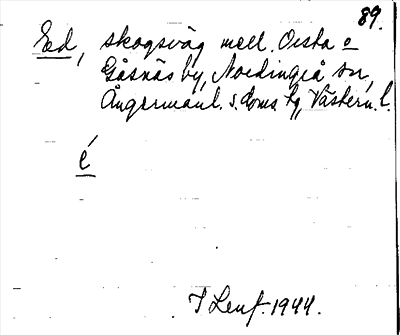 89.
Ed, skogsväg mell. Orsta o
Gåsnäs by, Nordingrå sn,
Ångermanl. s. doms. hg, Västern. l.
é
I Lenf. 1944.